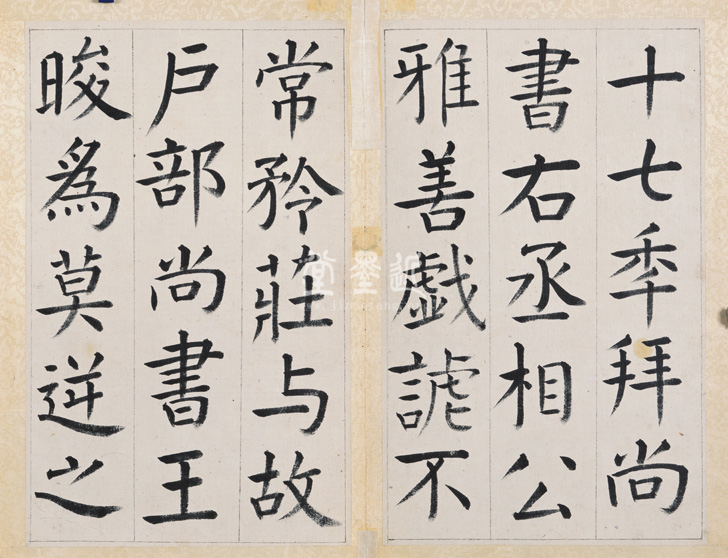 十七秊拜尚
書右丞相公
雅善戯謔不
常矜莊与故
戶部尚書王
晙為莫逆之